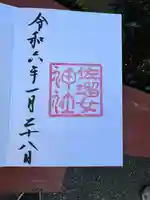 佐瑠女
神社
令和六年一月二十八日